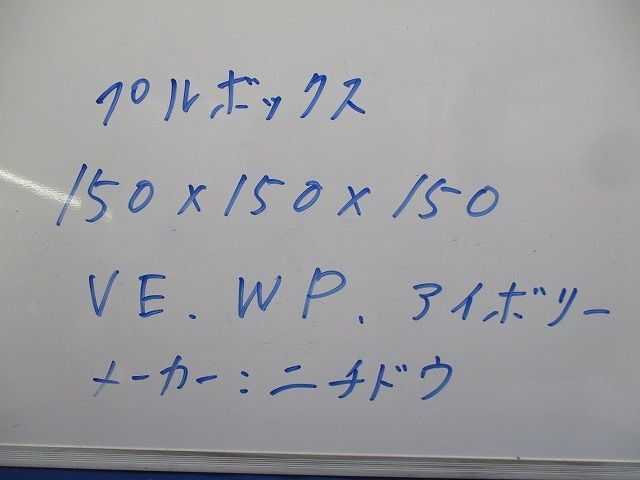 プルボックス
150×150×150
VE.WP.アイボリー
メーカー:ニチドウ